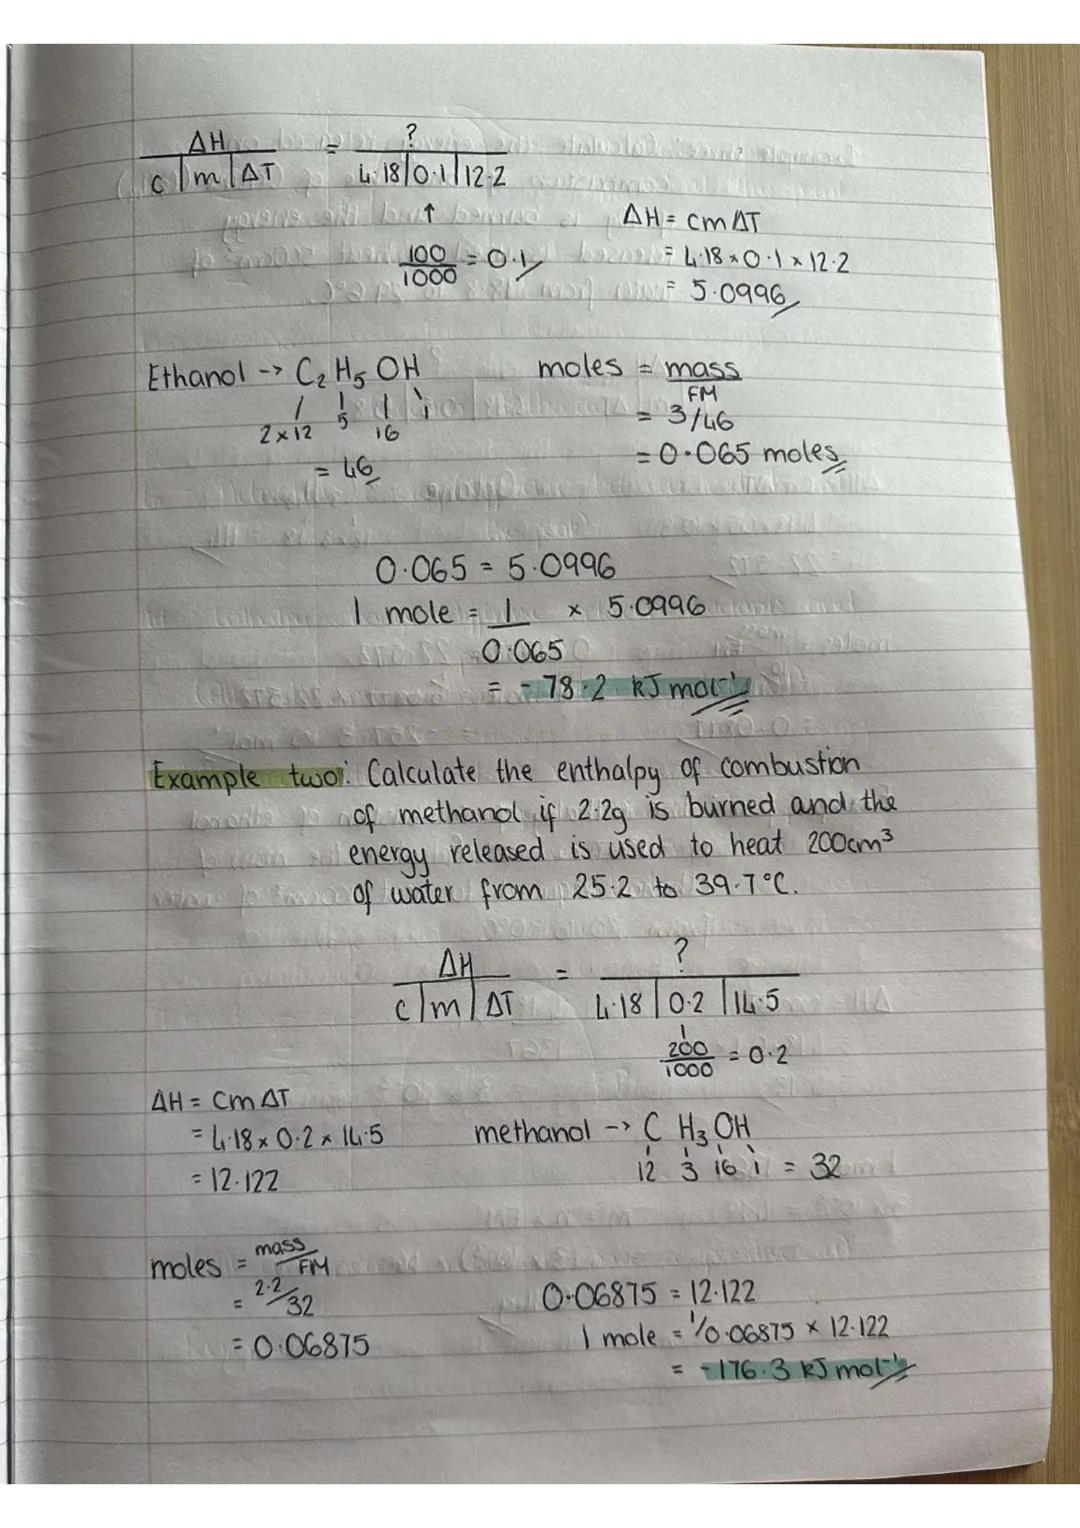 ΔH = ?
c | m | ΔT   4.18 | 0.1 | 12.2
↑
100/1000 = 0.1
ΔH = cmΔT
= 4.18 × 0.1 × 12.2
= 5.0996
Ethanol -> C₂ H₅ OH
2×12 5 16 1
= 46
moles = mass/FM
= 3/46
= 0.065 moles
0.065 = 5.0996
1 mole = 1/0.065 × 5.0996
= -78.2 kJ mol⁻¹
Example two: Calculate the enthalpy of combustion
of methanol if 2.2g is burned and the
energy released is used to heat 200cm³
of water from 25.2 to 39.7°C.
ΔH = ?
c | m | ΔT   4.18 | 0.2 | 14.5
200/1000 = 0.2
ΔH = cmΔT
= 4.18 × 0.2 × 14.5
= 12.122
methanol -> C H₃ OH
12 3 16 1 = 32
moles = mass/FM
= 2.2/32
= 0.06875
0.06875 = 12.122
1 mole = 1/0.06875 × 12.122
= -176.3 kJ mol⁻¹